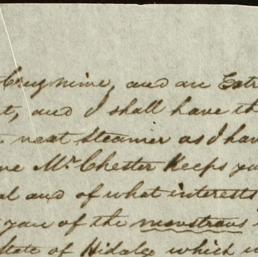 and an Extr
t, and I shall have th
next steamer as I have
me Mr Chester keeps yo
al and of what interests
you of the monstrous
State of Hidalgo which w